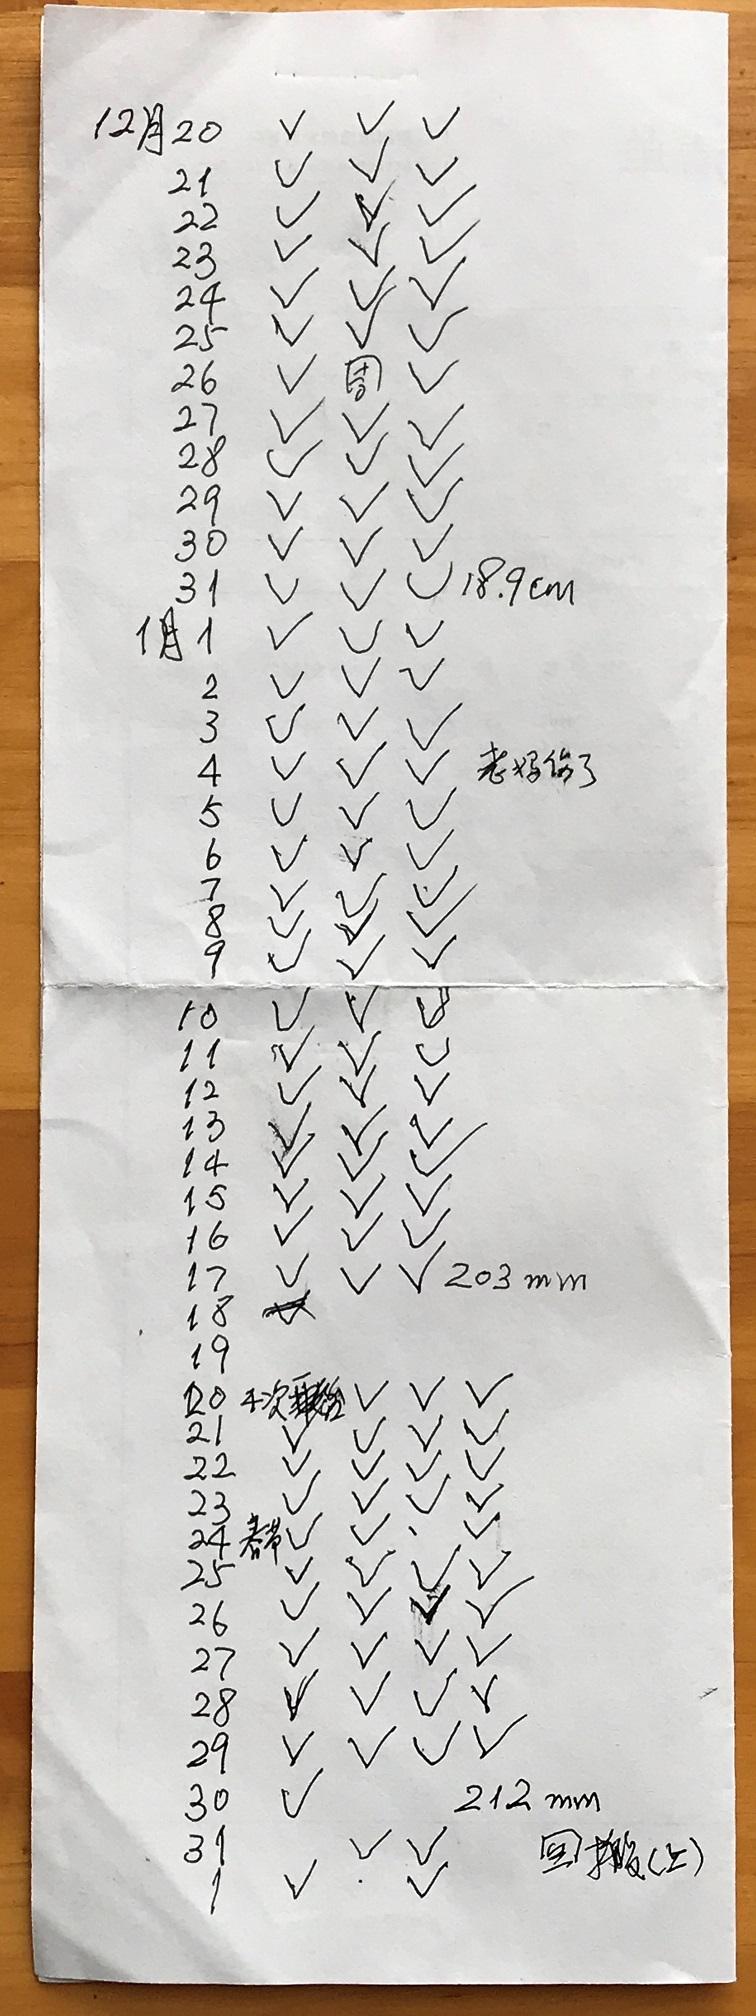 12月20 ✓ ✓ ✓
21 ✓ ✓ ✓
22 ✓ ✓ ✓
23 ✓ ✓ ✓
24 ✓ ✓ ✓
25 ✓ ✓ ✓
26 ✓ ✓
27 ✓ ✓ ✓
28 ✓ ✓ ✓
29 ✓ ✓ ✓
30 ✓ ✓ ✓
31 ✓ ✓ ✓ 18.9cm
1月1 ✓ ✓ ✓
2 ✓ ✓ ✓
3 ✓ ✓ ✓
4 ✓ ✓ ✓ 老妈伤了
5 ✓ ✓ ✓
6 ✓ ✓ ✓
7 ✓ ✓ ✓
8 ✓ ✓ ✓
9 ✓ ✓ ✓
10 ✓ ✓ ✓
11 ✓ ✓ ✓
12 ✓ ✓ ✓
13 ✓ ✓ ✓
14 ✓ ✓ ✓
15 ✓ ✓ ✓
16 ✓ ✓ ✓
17 ✓ ✓ ✓ 203mm
18
19
20 4次 ✓ ✓ ✓
21 ✓ ✓ ✓ ✓
22 ✓ ✓ ✓ ✓
23 ✓ ✓ ✓ ✓
24 春节 ✓ ✓ · ✓
25 ✓ ✓ ✓ ✓
26 ✓ ✓ ✓ ✓
27 ✓ ✓ ✓ ✓
28 ✓ ✓ ✓ ✓
29 ✓ ✓ ✓ ✓
30 ✓ 212mm
31 ✓ ✓
1 ✓ · ✓